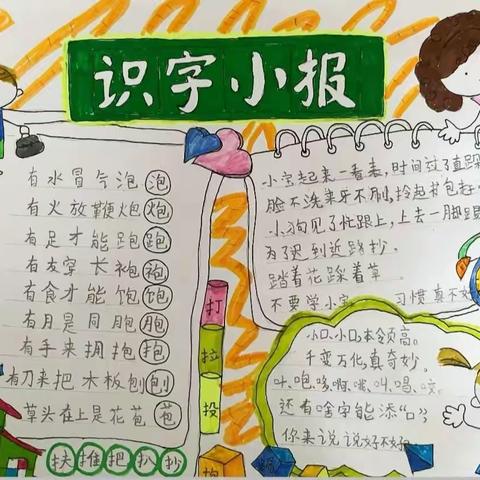 识字小报
有水冒气泡 泡
有火放鞭炮 炮
有足才能跑 跑
有衣穿长袍 袍
有食才能饱 饱
有月是同胞 胞
有手来拥抱 抱
有刀来把木板刨 刨
草头在上是花苞 苞
扶推把扒抄
打
拉
投
抱
小宝起来一看表,时间过了直跺
脸不洗来牙不刷,拎起书包赶
小狗见了忙跟上,上去一脚踢
为了迟到近路抄。
踏着花踩着草
不要学小宝 习惯真不
小口,小口,本领高。
千变万化,真奇妙。
叶、咆、哆、啊、哦、叫、喝、咬。
还有啥字能添“口”,
你来说说好不好